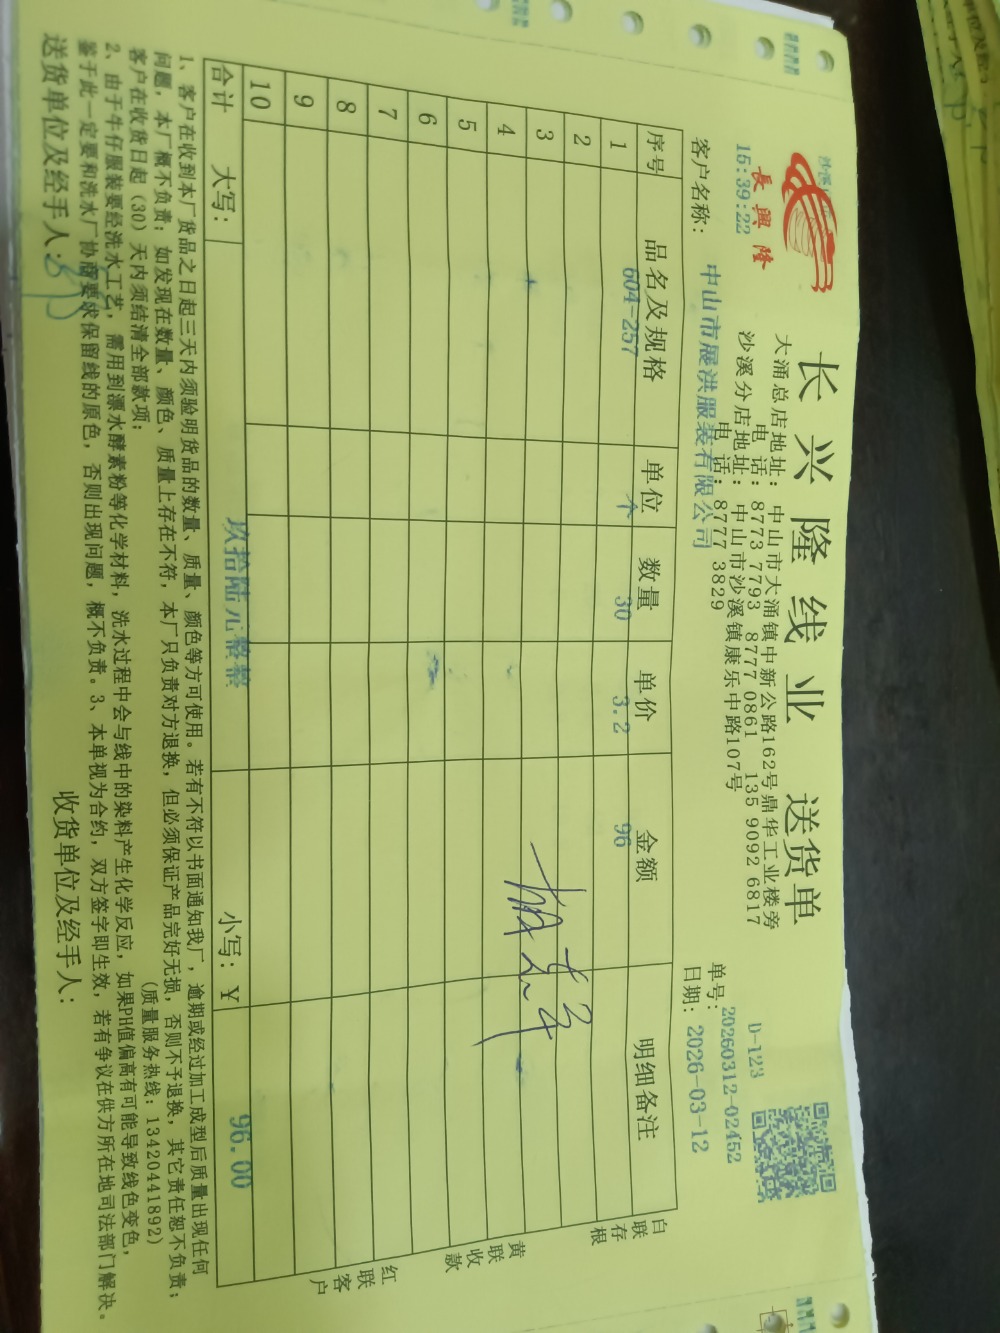 長興隆
15:39:22
长兴隆线业 送货单
大涌总店地址: 中山市大涌镇中新公路162号鼎华工业楼旁
电 话: 8773 7793 8777 0861 135 9092 6817
沙溪分店地址: 中山市沙溪镇康乐中路107号
电 话: 8777 3829
D-123
单号: 20260312-02452
客户名称: 中山市展洪服装有限公司
日期: 2026-03-12
序号 品名及规格 单位 数量 单价 金额 明细备注
1 604-257 个 30 3.2 96
2
3
4
5
6
7
8
9
10
合计 大写: 玖拾陆元整 小写: ¥ 96.00
白联存根
黄联收款
红联客户
1、客户在收到本厂货品之日起三天内须验明货品的数量、质量、颜色等方可使用。若有不符以书面通知我厂,逾期或经过加工成型后质量出现任何
问题,本厂概不负责;如发现在数量、颜色、质量上存在不符,本厂只负责对方退换,但必须保证产品完好无损,否则不予退换,其它责任恕不负责;
客户在收货日起(30)天内须结清全部款项; (质量服务热线:13420441892)
2、由于牛仔服装要经洗水工艺,需用到漂水酵素粉等化学材料,洗水过程中会与线中的染料产生化学反应,如果PH值偏高有可能导致线色变色,
鉴于此一定要和洗水厂协商要求保留线的原色,否则出现问题,概不负责。3、本单视为合约,双方签字即生效,若有争议在供方所在地司法部门解决。
送货单位及经手人: 收货单位及经手人: